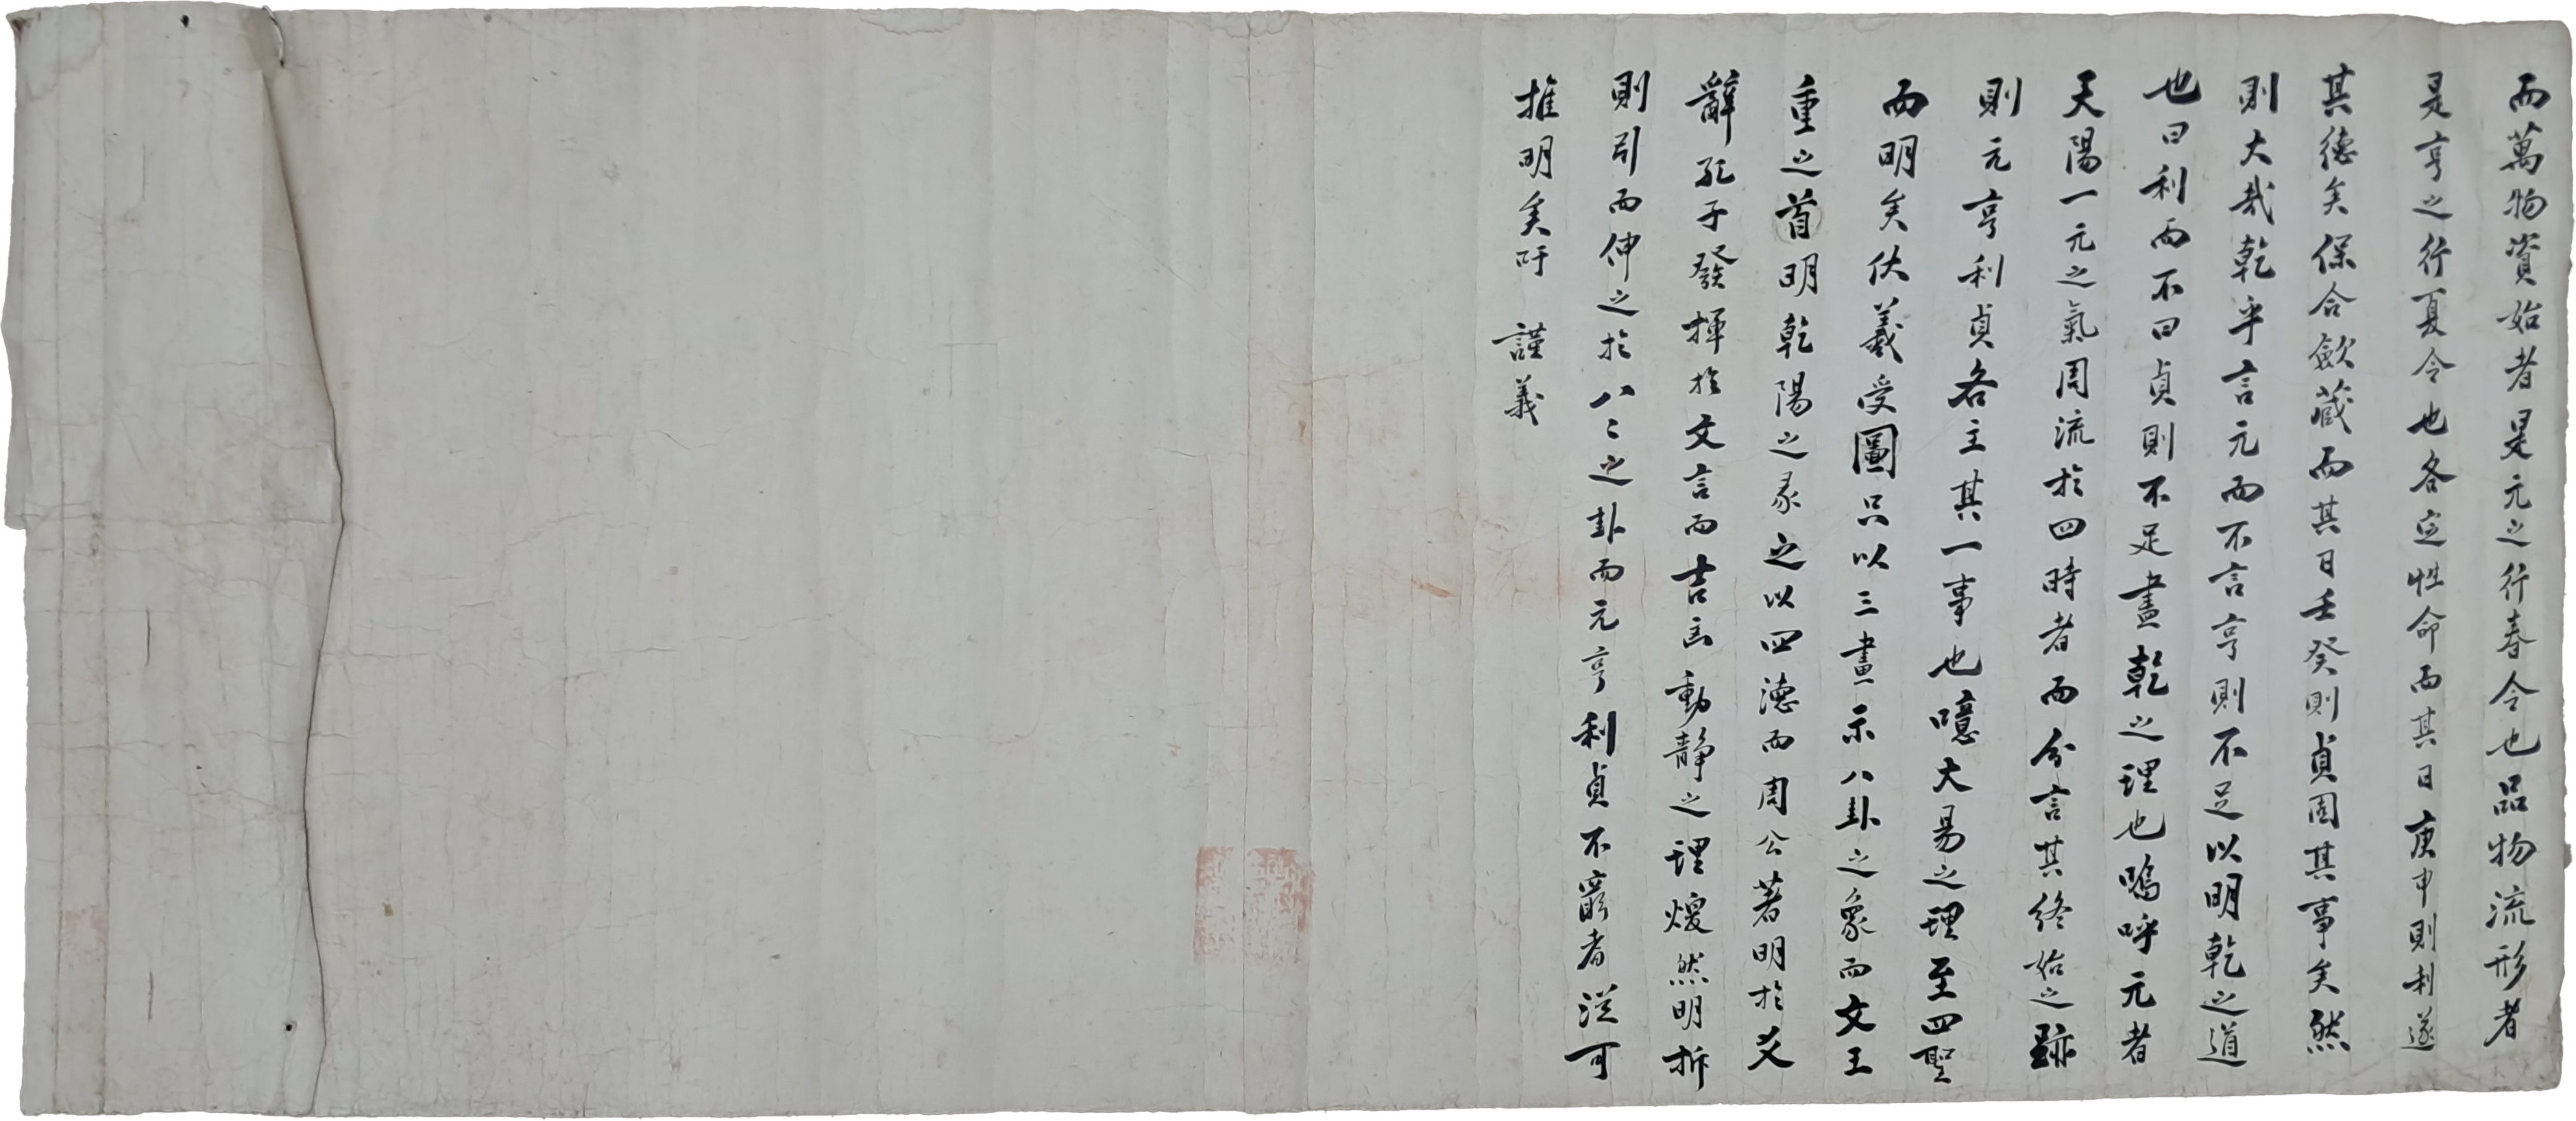 而萬物資始者是元之行春令也品物流形者
是亨之行夏令也各定性命而其日庚申則利遂
其德矣保合歛藏而其日壬癸則貞固其事矣然
則大哉乾乎言元而不言亨則不足以明乾之道
也曰利而不曰貞則不足盡乾之理也嗚呼元者
天陽一元之氣周流於四時者而分言其終始之跡
則元亨利貞各主其一事也噫大易之理至四聖
而明矣伏羲受圖只以三畫示八卦之象而文王
重之首明乾陽之彖之以四德而周公著明於爻
辭孔子發揮於文言而吉凶動靜之理煥然明拆
則引而伸之於八〻之卦而元亨利貞不窮者從可
推明矣吁 謹義